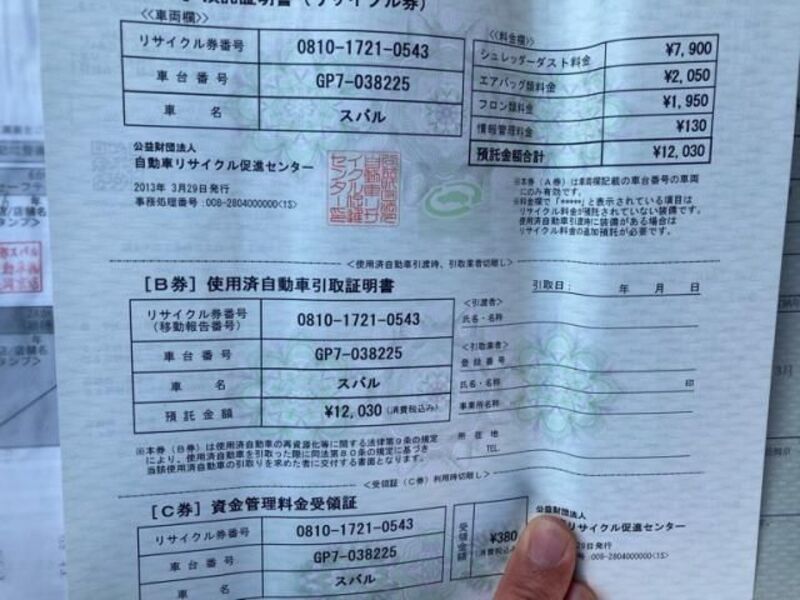 預託証明書(リサイクル券)
<<車両欄>>
リサイクル券番号 0810-1721-0543
車台番号 GP7-038225
車名 スバル
<<料金欄>>
シュレッダーダスト料金 ¥7,900
エアバッグ類料金 ¥2,050
フロン類料金 ¥1,950
情報管理料金 ¥130
預託金額合計 ¥12,030
公益財団法人
自動車リサイクル促進センター
2013年 3月29日発行
事務処理番号:008-2804000000<1S>
※本券(A券)は車両欄記載の車台番号の車両
にのみ有効です。
※料金欄で「*****」と表示されている項目は
リサイクル料金が預託されていない装備です。
使用済自動車引渡時に装備がある場合は
リサイクル料金の追加預託が必要です。
<使用済自動車引渡時、引取業者切離し>
[B券] 使用済自動車引取証明書
引取日: 年 月 日
リサイクル券番号
(移動報告番号) 0810-1721-0543
車台番号 GP7-038225
車名 スバル
預託金額 ¥12,030 (消費税込み)
<引渡者>
氏名・名称
<引取業者>
登録番号
氏名・名称 印
事業所名称
所在地
TEL.
※本券(B券)は使用済自動車の再資源化等に関する法律第9条の規定
により、使用済自動車を引取った際に同法第80条の規定に基づき
当該使用済自動車の引取りを求めた者に交付する書面となります。
<受領証(C券)利用時切離し>
[C券] 資金管理料金受領証
リサイクル券番号 0810-1721-0543
車台番号 GP7-038225
車名 スバル
受領金額 ¥380
(消費税込み
公益財団法人
リサイクル促進センター
29日発行
:008-2804000000<1S>